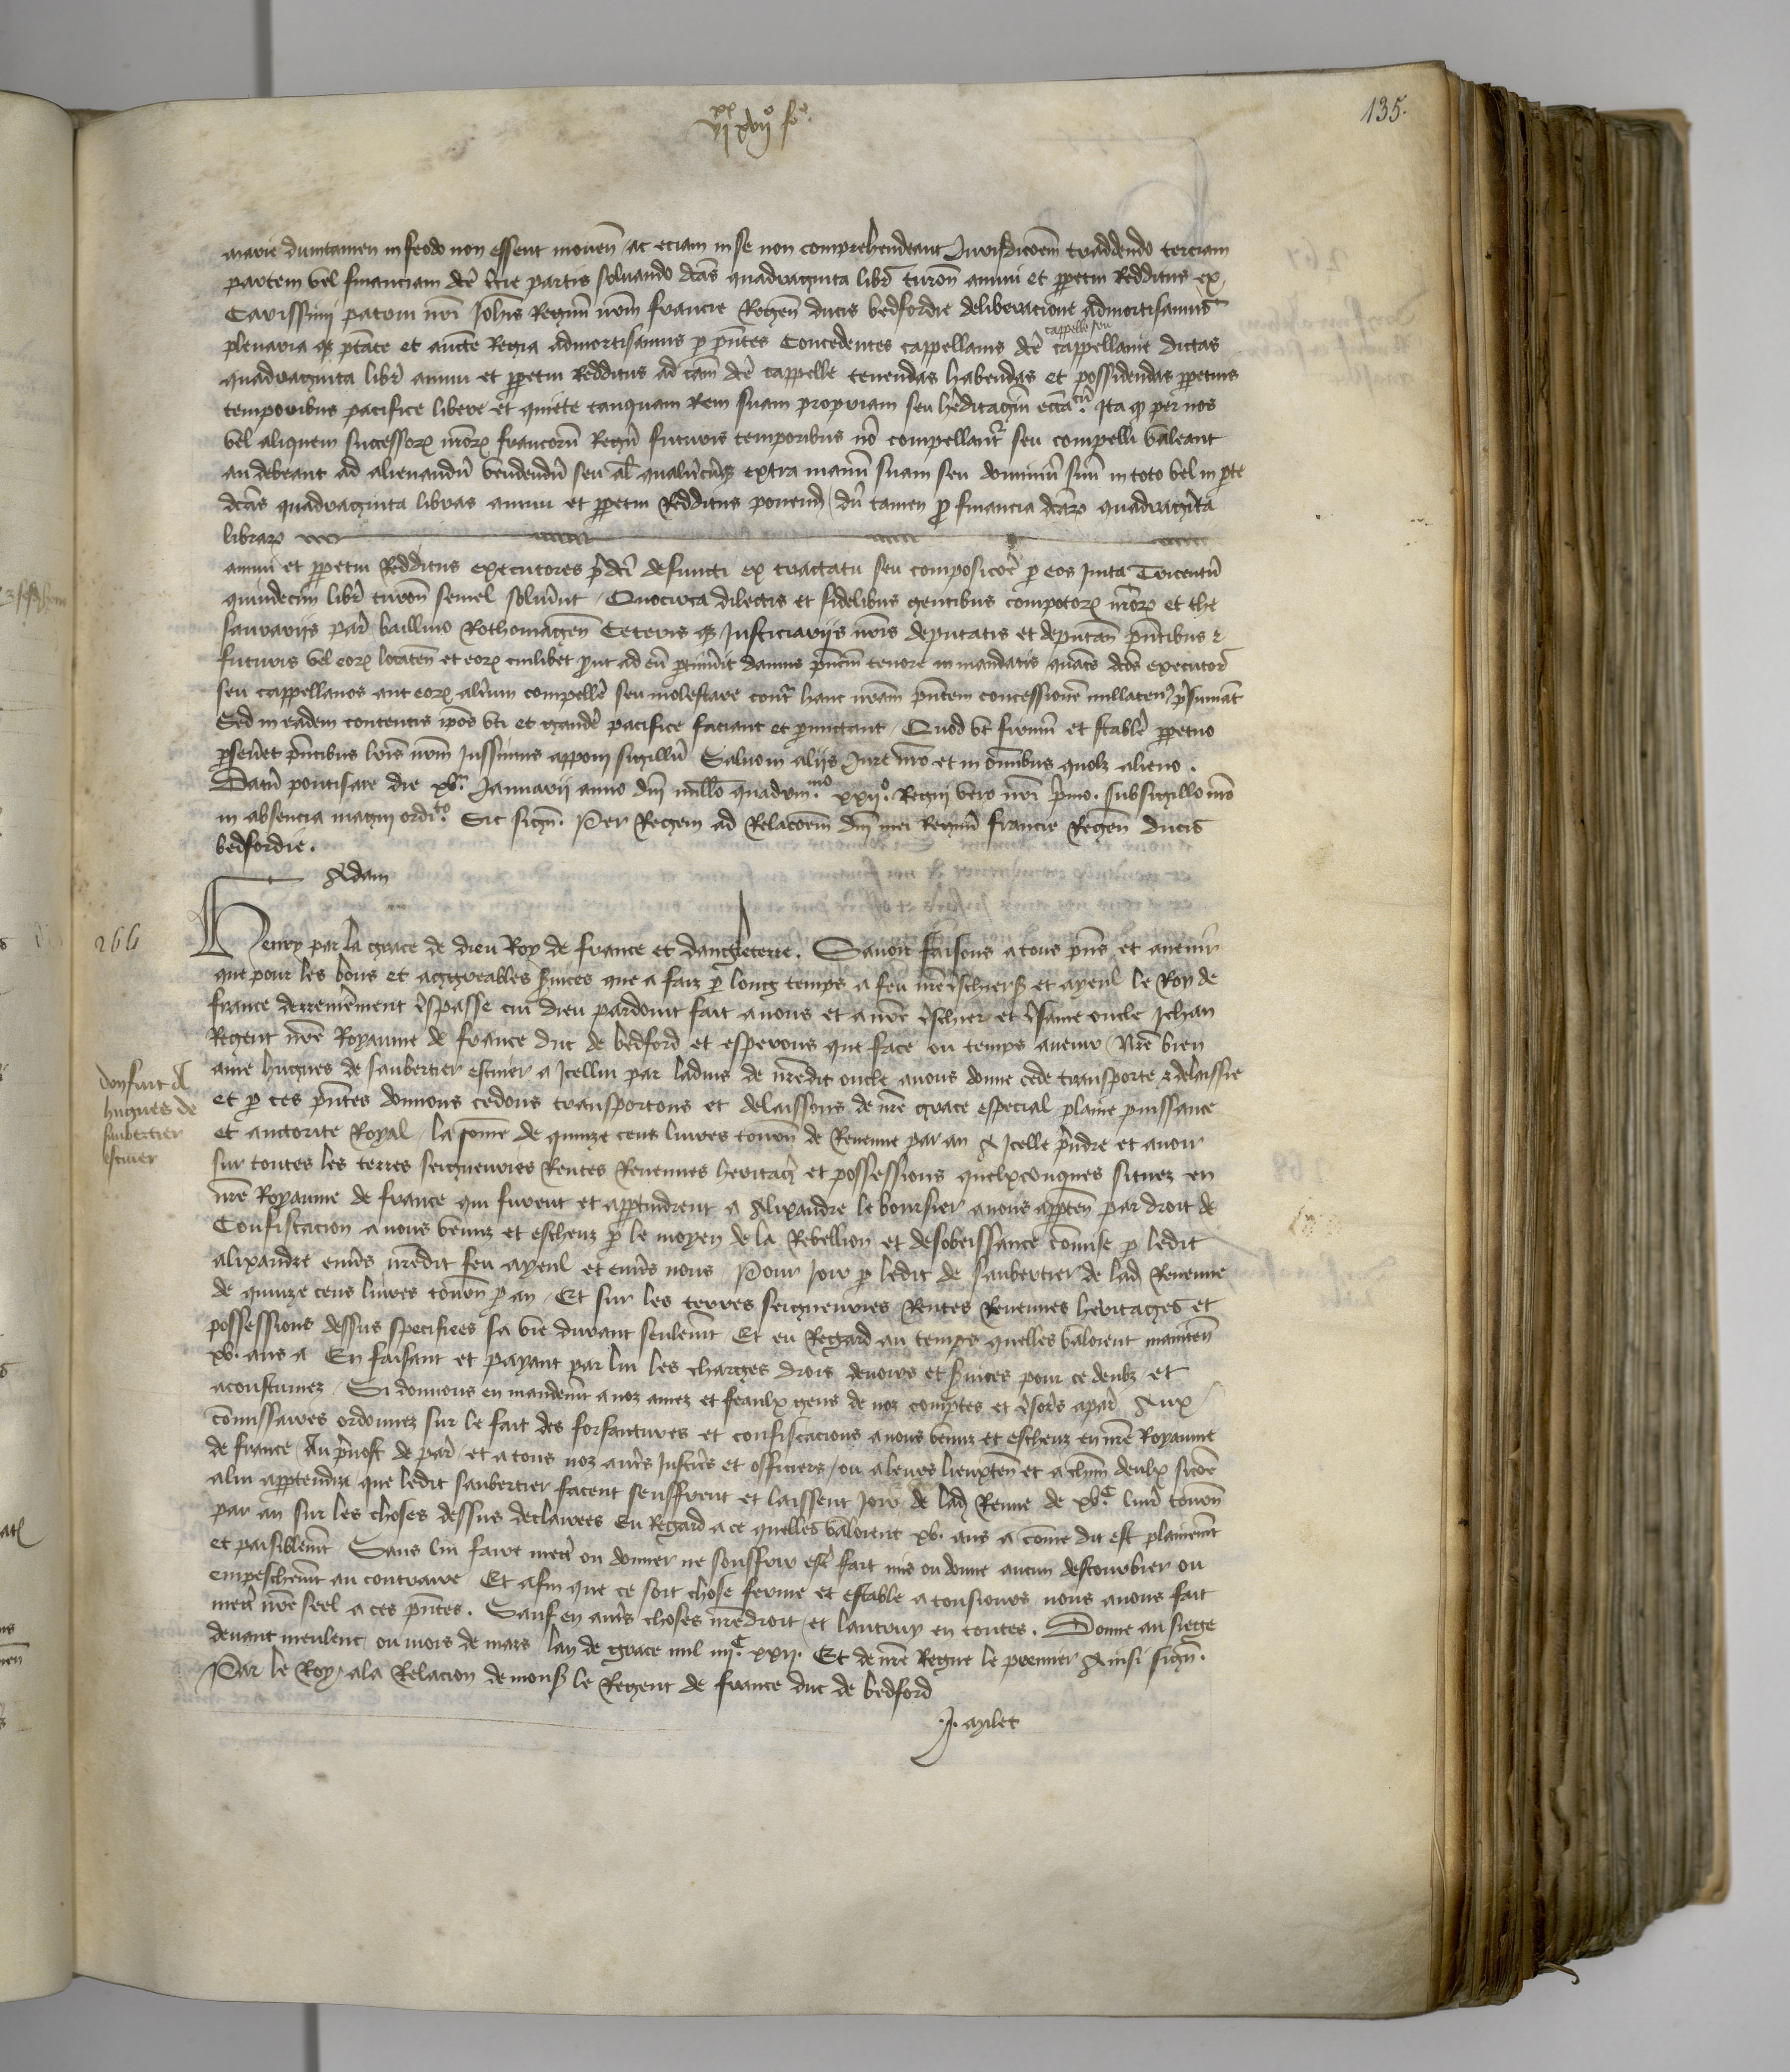 135.
vixx xviio fo.
marie dumtamen in feodo non essent mouen ac eciam in se non comprehendeant Jurisdicoem traddendo terciam
partem vel financiam dce tcie partis soluendo dcas quadraginta libr turon annui et ppetui Redditus ex
Carissimi patrui nri Johis Regnum nrm francie Regen ducis bedfordie deliberacione admortisamus
plenaria qz ptate et aucte Regia admortisamus p pntes Concedentes cappellanis dce cappelle seu cappellanie dictas
quadraginta libr annui et ppetui Redditus ad cam dce cappelle tenendas habendas et possidendas ppetuis
temporibus pacifice libere et quiete tanquam Rem suam propriam seu hereditagiu ecclia cu. Ita qz per nos
vel aliquem successorz nrorz francoru Regu futuris temporibus no compellantr seu compelli valeant
an debeant ad alienandu vendendu seu al qualitcuqz extra manu suam seu dominiu suu in toto vel in pte
dcas quadraginta libras annui et ppetui Redditus ponend / du tamen p financia dcarz quadraginta
librarz
annui et ppetui Redditus executores pdci defuncti ex tractatu seu composicoe p eos inita Tricentu
quindecim libr turon semel soluerut / Quocirca dilectis et fidelibus gentibus compotorz nrorz et the
saurariis par baillivo Rothomagen Ceterisqz Justiciariis nris deputatis et deputan pntibus z
futuris vel eorz locaten et eorz cuilibet put ad eu ptinuerit damus pncm tenore in mandatis quate dcos executor
seu cappellanos aut eorz alterum compelle seu molestare cont hanc nram pntem concessione nullaten psumat
Sed in eadem contentis ipos vti et gaude pacifice faciant et pmittant / Quod vt firmu et stable ppetuo
pseuet pntibus lris nrm Jussimus apponi sigillu Saluo in aliis Jure nro et in omibus quolz alieno.
Datu pontisare die xva. Januarii anno dni millo quadrinmo. xxiio. Regni vero nri pmo. sub sigillo nro
in absencia magni ordito. Sic sign. Per Regem ad Relacoem dni mei Regnu francie Regen ducis
bedfordie.
Adam
266
Henry par la grace de dieu Roy de france et dangleterre. Savoir faisons a tous pns et auenir
que pour les bons et aggreables suices que a faiz p long temps a feu nre tschiers et ayeul le Roy de
france derrenement tspasse cui dieu pardoint fait a nous et a nre tschier et tsame oncle Jehan
Regent nre Royaume de france duc de bedford et esperons que face ou temps auenir / Nre bien
ame hugues de saubertier escuier a Icellui par ladvis de nredit oncle auons donne cede transporte z delaissie
et p ces pntes donnons cedons transportons et delaissons de nre grace especial plaine puissance
et auctorite Royal / la some de quinze cens liures tourn de Reuenue par an A Icelle pndre et auoir
sur toutes les terres seigneuries Rentes Reuenues heritages et possessions quelxconques situez en
nre Royaume de france qui furent et apptindrent a Alixandre le boursier a nous apptен par droit de
Confiscacion a nous venuz et escheuz p le moyen de la Rebellion et desobeissance comise p ledit
alixandre enuers nredit feu ayeul et enuers nous Pour Joir p ledit de saubertier de lad Reuenue
de quinze cens liures tourn p an / Et sur les terres seigneuries Rentes Reuenues heritages et
possessions dessus specifiees sa vie durant seulemt Et eu Regard au temps quelles valoient mainten
xv. ans a En faisant et payant par lui les charges drois deuoirs et suices pour ce deubz et
acoustumez / Si donnons en mandemt a noz amez et feaulx gens de noz comptes et tsors a par Aux
comissaires ordonnez sur le fait des forfautures et confiscacions a nous venuz et escheuz en nre Royaume
de france / Au puost de par et a tous noz autrs Justics et officiers / ou a leurs lieuxten et a chun deulx sicoe
a lui apptendra que ledit saubertier facent seuffrent et laissent Joir de lad Renue de xvC. liur tourn
par an sur les choses dessus declairees Eu Regard a ce quelles valoient xv. ans a come dit est plainemt
et paisiblemt Sans lui faire mett ou donner ne souffrir est fait mis ou donne aucun destourbier ou
empeschemt au contraire Et afin que ce soit chose ferme et estable a tousiours nous auons fait
mett nre seel a ces pntes. Sauf en autrs choses nre droit / et lautruy en toutes. Donne au siege
deuant meulenc / ou mois de mars lan de grace mil iiiiC. xxii. Et de nre Regne le premier Ainsi sign.
Par le Roy / a la Relacion de mons le Regent de france duc de bedford
J. milet
Don fait a
hugues de
saubertier
escuier